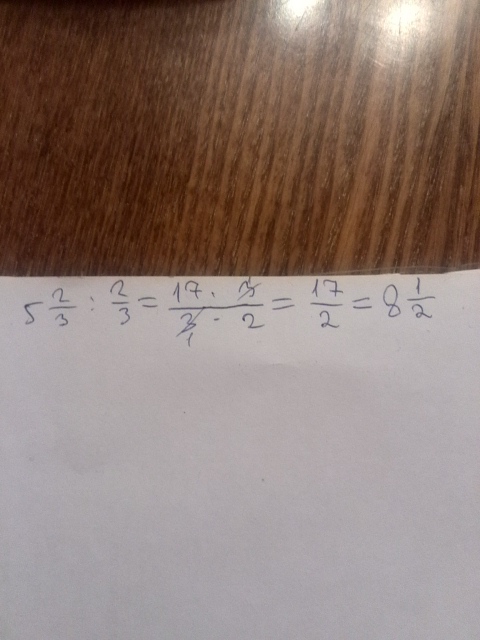 5 2/3 : 2/3 = (17 · 3)/(3 · 2) = 17/2 = 8 1/2